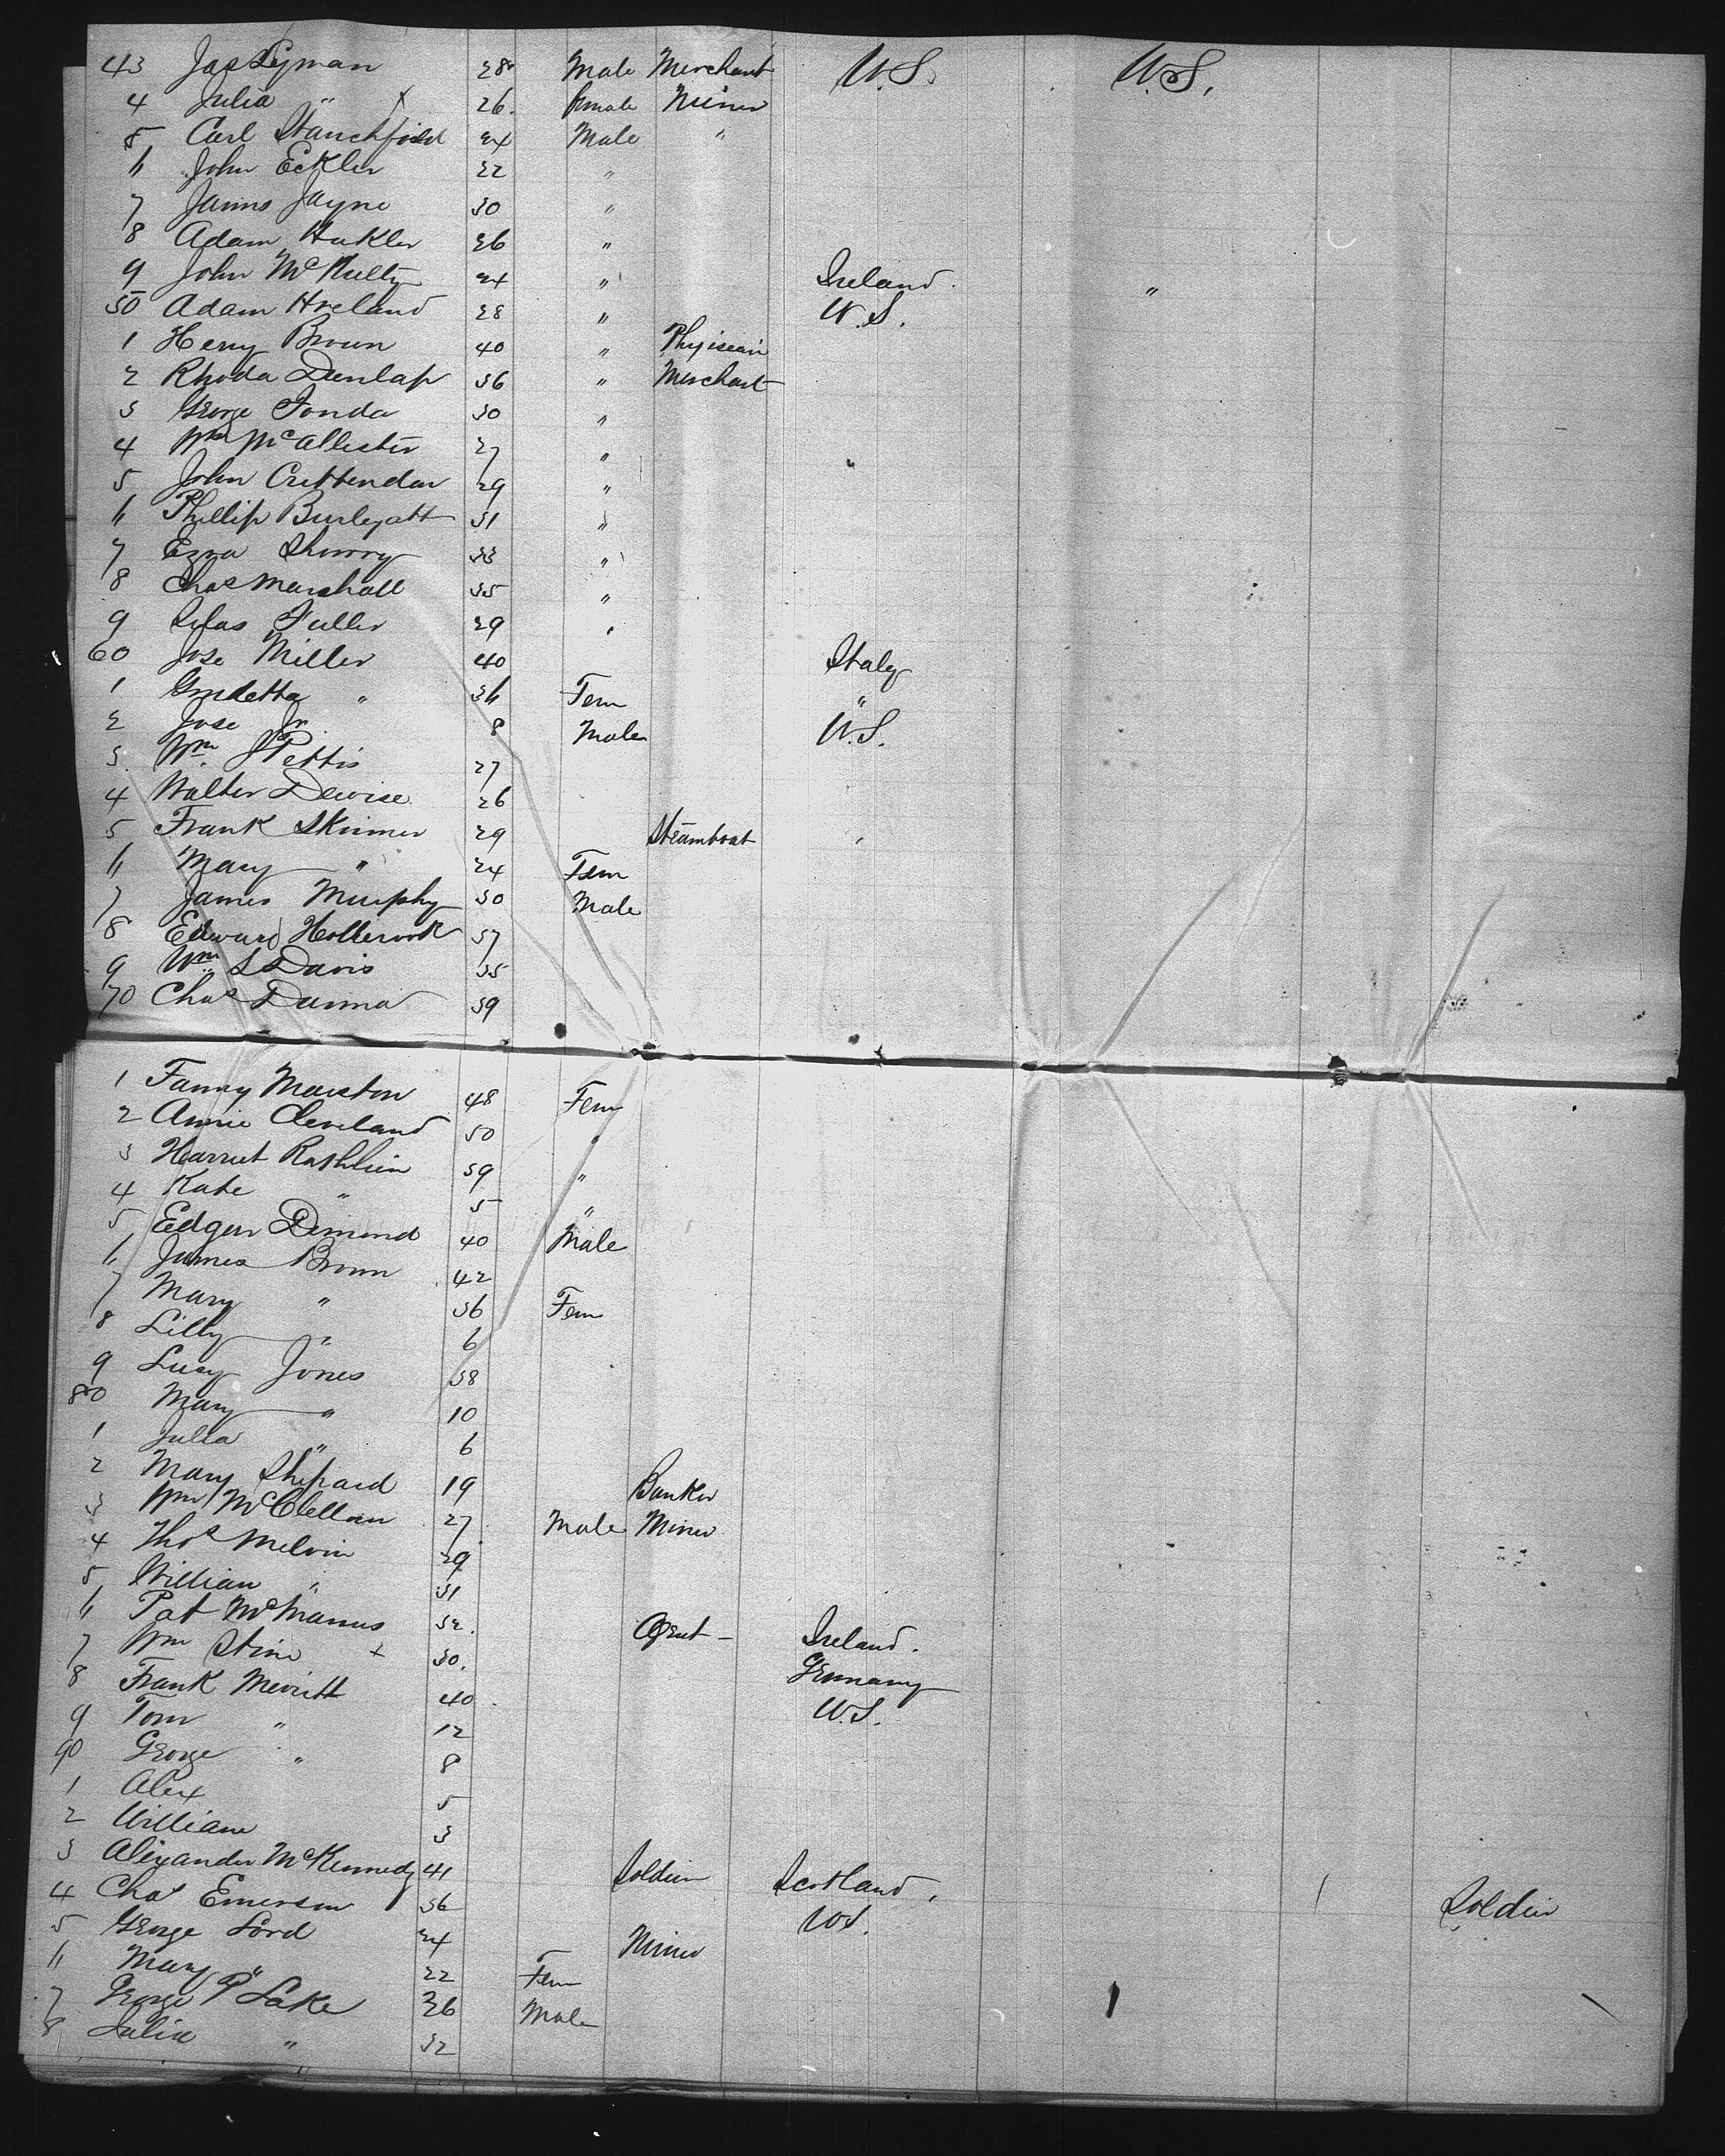 43 Jas Lyman 28 Male Merchant U.S. U.S.
4 Julia " x 26. female Miner
5 Carl Stanchfield 24 Male "
6 John Eckler 22 "
7 James Jayne 30 "
8 Adam Hakler 26 "
9 John McNulty 24 " Ireland. "
50 Adam Hreland 28 " U.S.
1 Henry Brown 40 " Phyisean
2 Rhoda Dunlap 36 " Merchant
3 George Fonda 30 "
4 Wm McAllister 27 "
5 John Crittendan 29 "
6 Phillip 31 "
7 Ezra 33 "
8 Chas Marshall 35 "
9 Sylas Fuller 29 "
60 Jose Miller 40 Italy
1 " 36 Fem "
2 Jose Jr. 8 Male U.S.
3. Wm. J Pettis 27
4 Walter Dewise 26
5 Frank Skinner 29 Steamboat
6 Mary " 24 Fem
7 James Murphy 30 Male
8 Edward Hollbrook 37
9 Wm S Davis 35
70 Chas Danna 39
1 Fanny Marston 48 Fem
2 Annie Cleveland 50 "
3 Harriet 39 "
4 Kate " 5 "
5 Edgar Demond 40 Male
6 James Brown 42
7 Mary " 36 Fem
8 Lilly " 6
9 Lucy Jones 38
80 Mary " 10
1 Julia " 6
2 Mary Shepard 19 Banker
3 Wm McClellan 27 Male Miner
4 Thos Melvin 29
5 William " 31
6 Pat McManus 32. Agent - Ireland.
7 Wm Stine x 30. Germany
8 Frank Merritt 40 U.S.
9 Tom " 12
90 George " 8
1 Alex 5
2 William 3
3 Alexander McKennedy 41 Soldier Scotland,
4 Chas Emerson 36 U.S. 1 Soldier
5 George Lord 24 Miner
6 Mary " 22 Fem
7 George P Lake 36 Male 1
8 Julia " 32